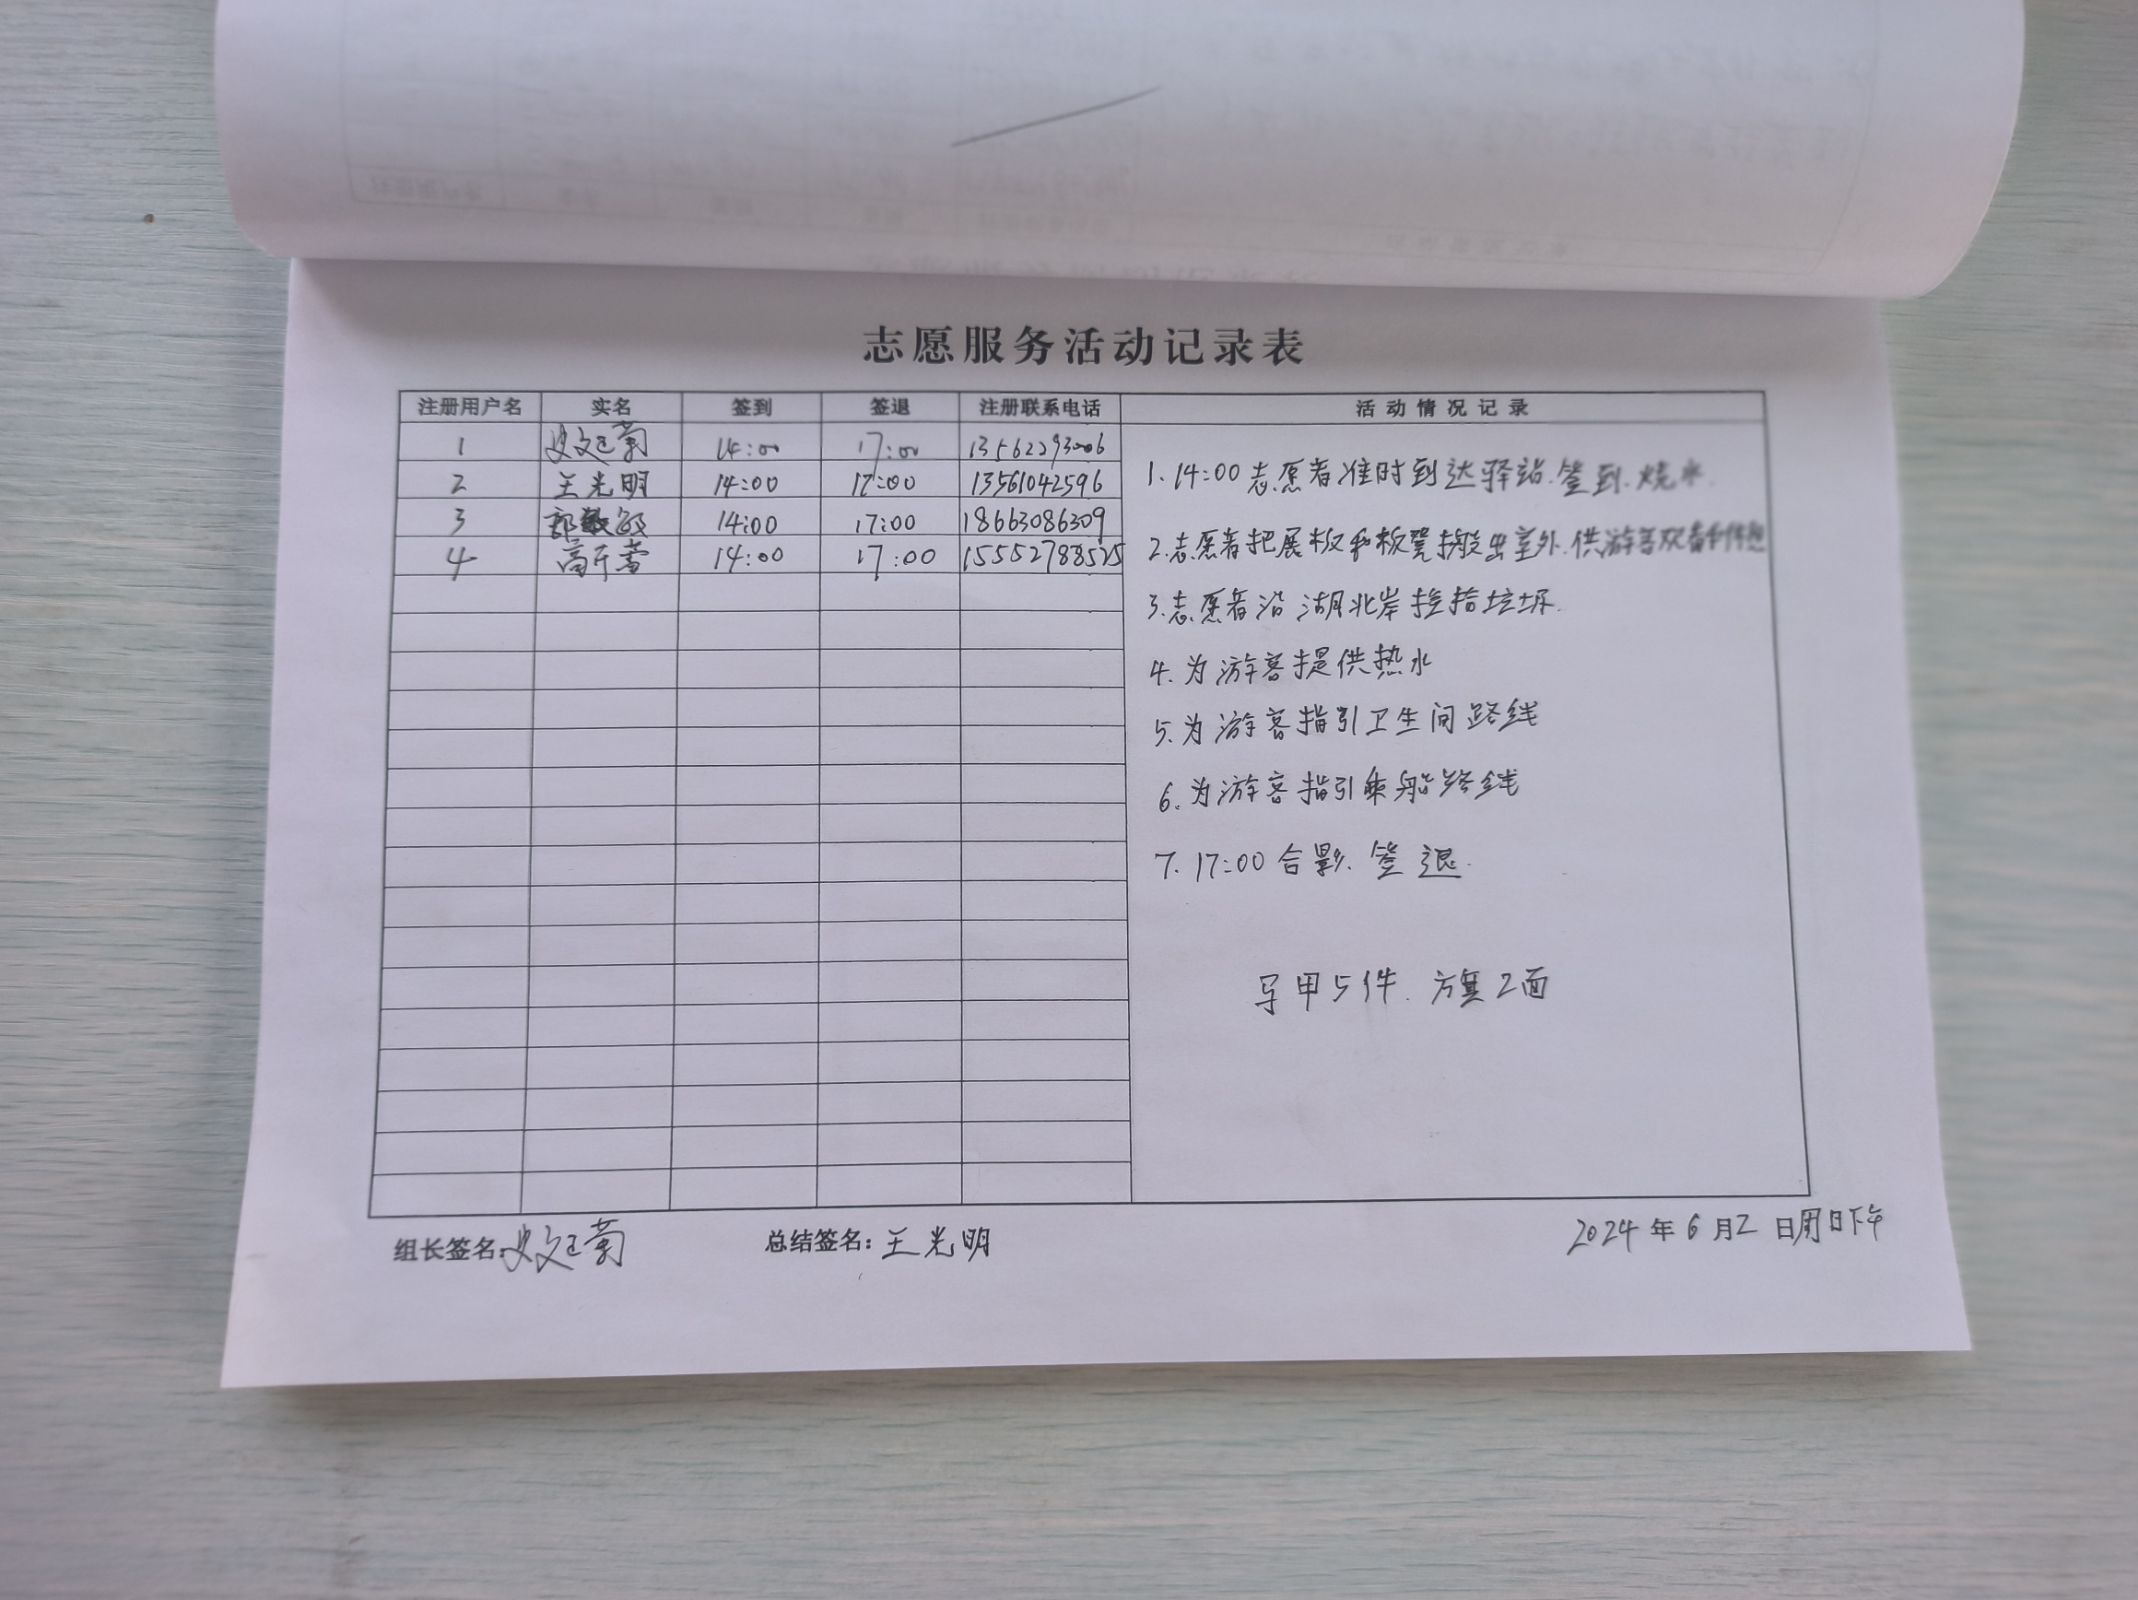 志愿服务活动记录表
注册用户名 实名 签到 签退 注册联系电话 活动情况记录
1 史文廷菊 14:00 17:00 13562293006
2 王光明 14:00 17:00 13561042596
3 郭敏 14:00 17:00 18663086309
4 高 14:00 17:00 15552788525
1. 14:00志愿者准时到达驿站.签到.烧水.
2.志愿者把展板和板凳搬出室外.供游客观看和休息
3.志愿者沿湖北岸捡拾垃圾.
4.为游客提供热水
5.为游客指引卫生间路线
6.为游客指引乘船路线
7. 17:00合影.签退.
马甲5件.旗2面
组长签名: 史文廷菊 总结签名: 王光明 2024年6月2日周日下午